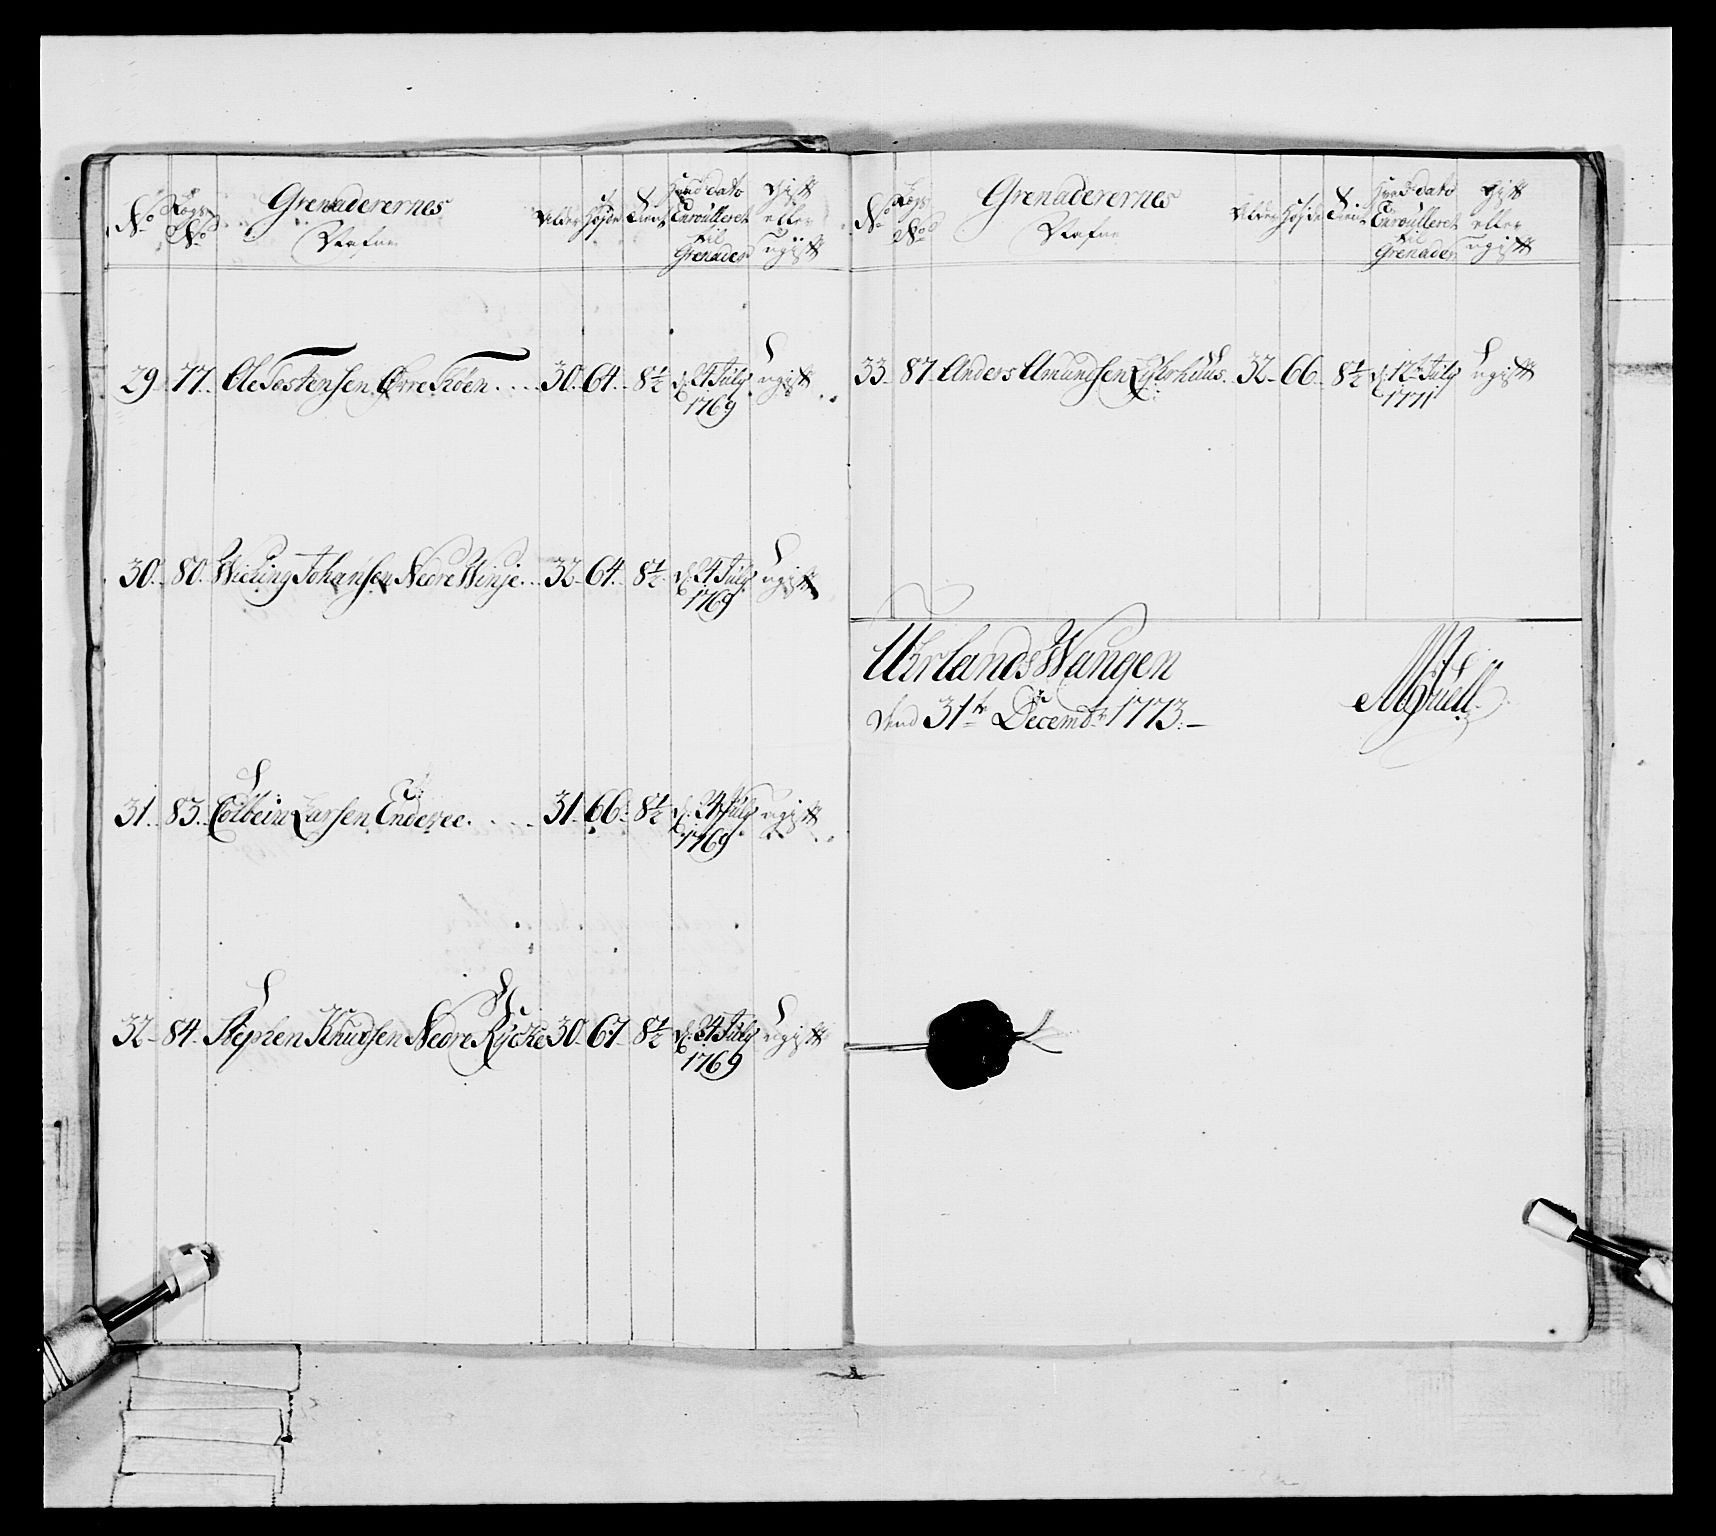 No Lægs No Grenaderernes Nafne Alder Høyde Tieent Hvad dato Enroulleret til Grenader Gift eller ugift
29. 77. Ole Tostensen Øvre Fröen . . . . 30. 64. 8½ d. 24 July 1769 ugift
30. 80. Wiching Johansen Nedre Winje . . 32. 64. 8½ d. 24 July 1769 ugift
31. 83. Colbein Larsen Enderee . . . . 31. 66. 8½ d. 24 July 1769 ugift
32. 84. Stephen Knudsen Nedre 30. 67. 8½ d. 24 July 1769 ugift
No Lægs No Grenaderernes Nafne Alder Høyde Tieent Hvad dato Enroulleret til Grenader Gift eller ugift
33. 87. Anders Amundsen 32. 66. 8½ d. 12te July 1771 ugift
Uhrlands Wangen
dend 31te Decembr 1773. —